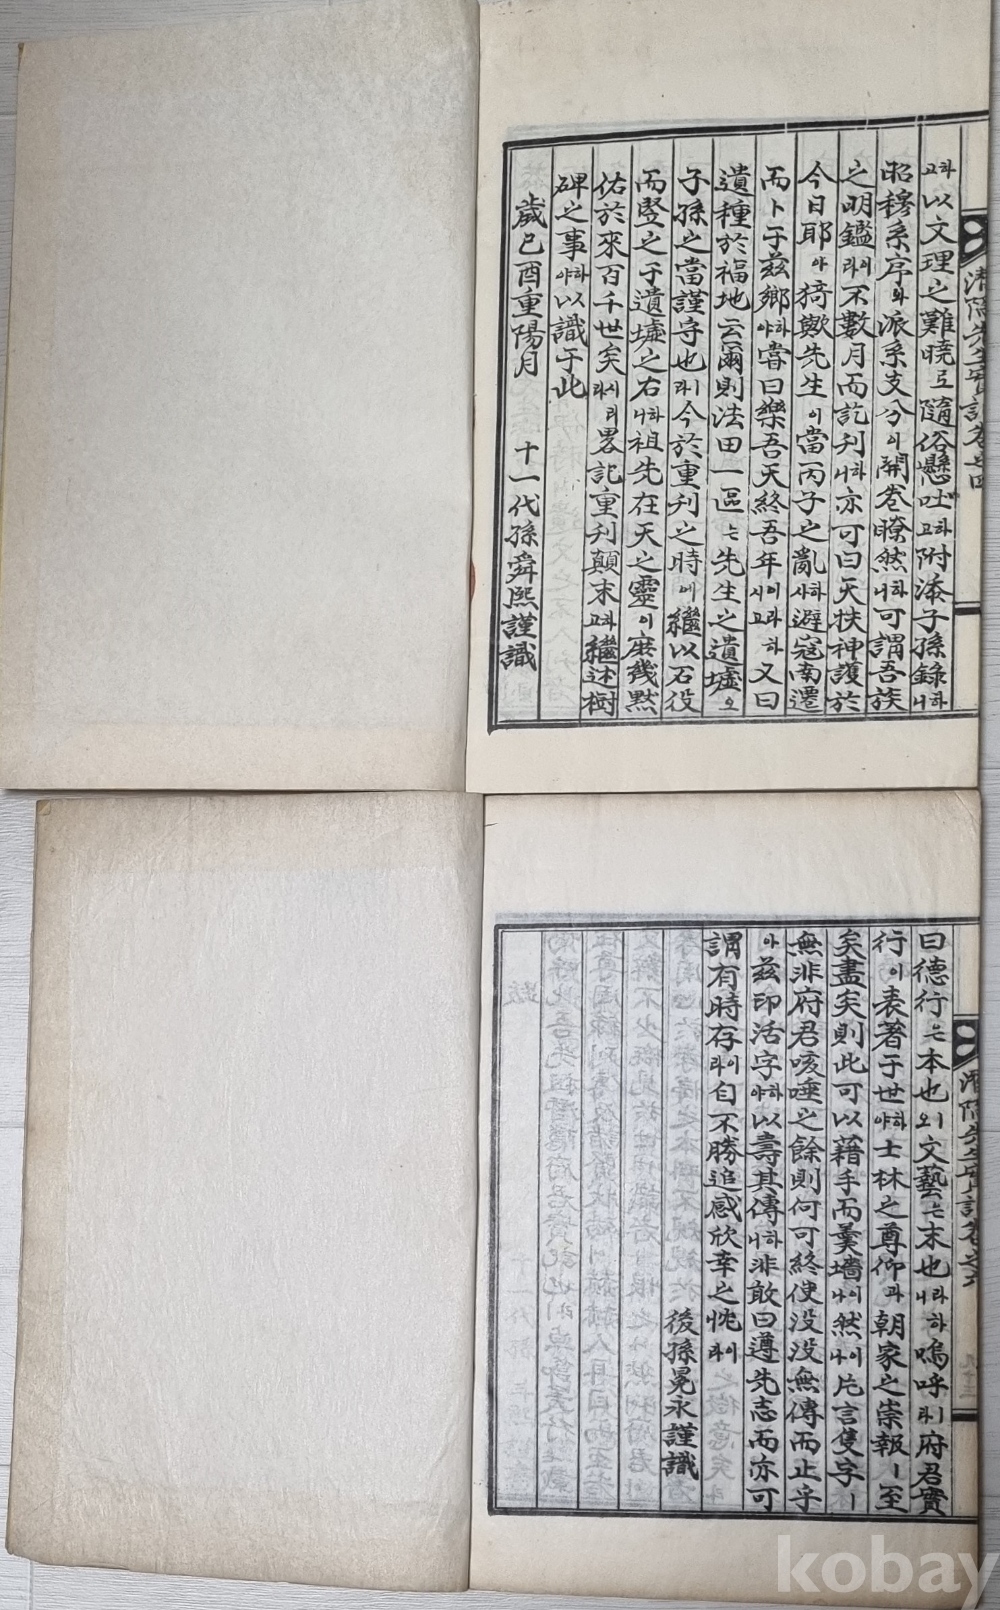 고하以文理之難曉로隨俗懸吐고하附添子孫錄니하
昭穆系序와派系支分이開卷瞭然니하可謂吾族
之明鑑라이不數月而訖刊니하亦可曰天扶神護於
今日耶아猗歟先生이當丙子之亂사하避寇南遷
而卜于玆鄉야하嘗曰樂吾天終吾年시이고라하又曰
遺種於福地云爾則法田一區는先生之遺墟오
子孫之當謹守也라ㅣ今於重刊之時에繼以石役
而竪之于遺墟之右니하祖先在天之靈이庶幾黙
佑於來百千世矣라시리畧記重刊顛末고하繼述樹
碑之事야하以識于此
歲己酉重陽月 十一代孫舜熙謹識
潛隱先生實記卷之四
曰德行는本也오ㅣ文藝는末也니라하嗚呼라ㅣ府君實
行이表著于世야하士林之尊仰과朝家之崇報ㅣ至
矣盡矣則此可以藉手而羹墻나이然나이片言隻字ㅣ
無非府君咳唾之餘則何可終使没没無傳而止乎
아玆印活字야하以壽其傳니하非敢曰遵先志而亦可
謂有時存라이自不勝追感欣幸之忱라이
後孫冕永謹識
潛隱先生實記卷之
九十三
kobay